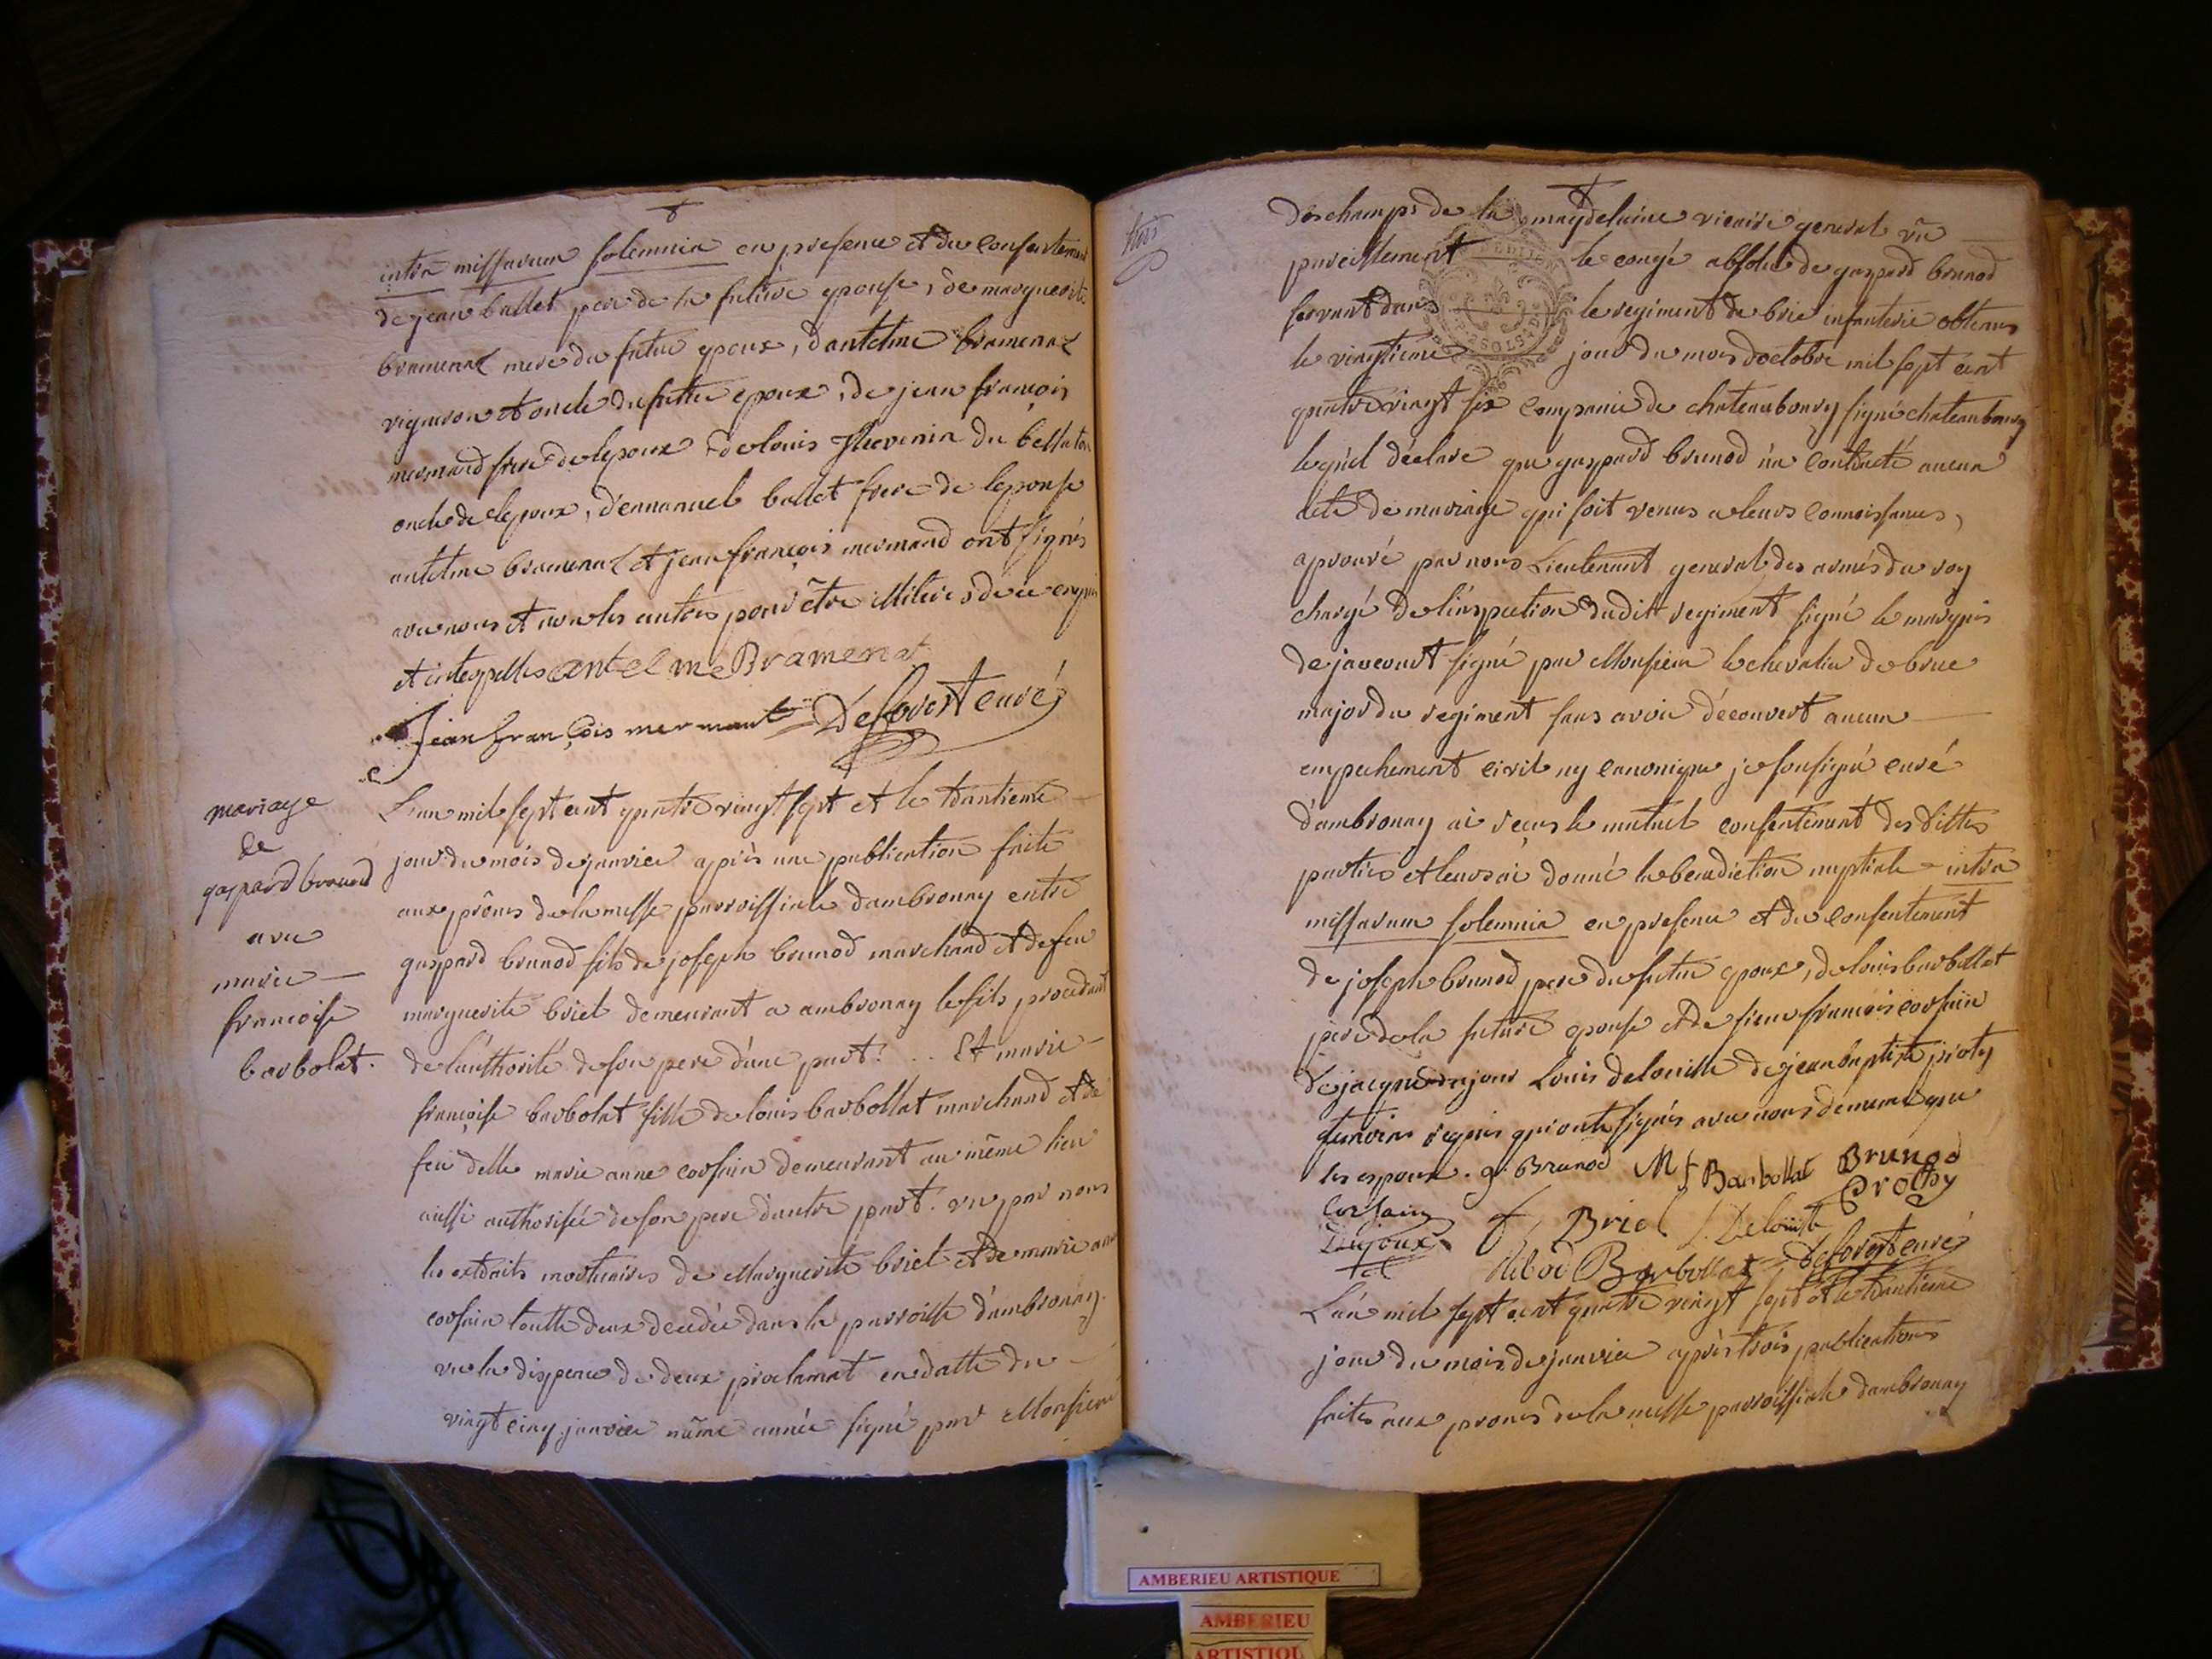 intra missarum solemnia en presence et du consentement
de jean ballet pere de la future epouse, de marguerite
bramenat mere du futur epoux, d'antelme bramenat
vigneron et oncle du futur epoux, de jean françois
mermand frere de lepoux de louis thevenin du
oncle de lepoux, d'emanuel ballet frere de lepouse
antelme bramenat et jean françois mermand ont signés
avec nous et non les autres pour être illiteres de ce enquis
et interpellés antelme Bramenat
Jean françois mermant Deforest curé
mariage
de
gaspard brunod
avec
marie
francoise
barbolat.
L'an mil sept cent quatre vingt sept et le trantieme
jour du mois de janvier après une publication faite
aux prônes de la messe parroissiale d'ambronay entre
gaspard brunod fils de joseph brunod marchand et de feu
marguerite briel demeurant a ambronay le fils procedant
de l'authorité de son pere d'une part. .. Et marie
françoise barbolat fille de louis barbollat marchand et de
feu delle marie anne corsain demeurant au même lieu
aussi authorisée de son pere d'autre part. vu par nous
les extraits mortuaires de Marguerite briel et de marie anne
corsain toutte deux decedée dans la parroisse d'ambronay.
vu la dispence de deux proclamat en datte du
vingt cinq janvier même année signé par Monsieur
deschamps de la magdelaine vicaire general vu
pareillement le congé absolu de gaspard brunod
servant dans le regiment de brie infanterie obtenus
le vingtieme jour du mois d'octobre mil sept cent
quatre vingt six companie de chateaubourg signé chateaubourg
lequel déclare que gaspard brunod n'a contracté aucun
acte de mariage qui soit venus a leurs connoissances,
aprouvé par nous Lieutenant general des armés du roy
chargé de l'inspection dudit regiment signé le marquis
de jaucourt signé par Monsieur le chevalier de brue
major du regiment sans avoir découvert aucun
empechement civil ny cannonique je soussigné curé
d'ambronay ai recus le mutuel consentement des dittes
parties et leurs ai donné la benediction nuptiale intra
missarum solemnia en presence et du consentement
de joseph brunod pere du futur epoux, de louis barbollat
pere de la future epouse et de sieur françois corsain
de jacque dujoux Louis delouille de jean baptiste
temoins requis qui ont signés avec nous de meme que
les epoux. g. Brunod M f Barbollat Brunod
Corsain f. Briel L. Crothy
Dujoux Barbollat Deforest curé
L'an mil sept cent quatre vingt sept et le trantieme
jour du mois de janvier après trois publications
faites aux prones de la messe parroissiale d'ambronay
AMBERIEU ARTISTIQUE
AMBERIEU
ARTISTIQU